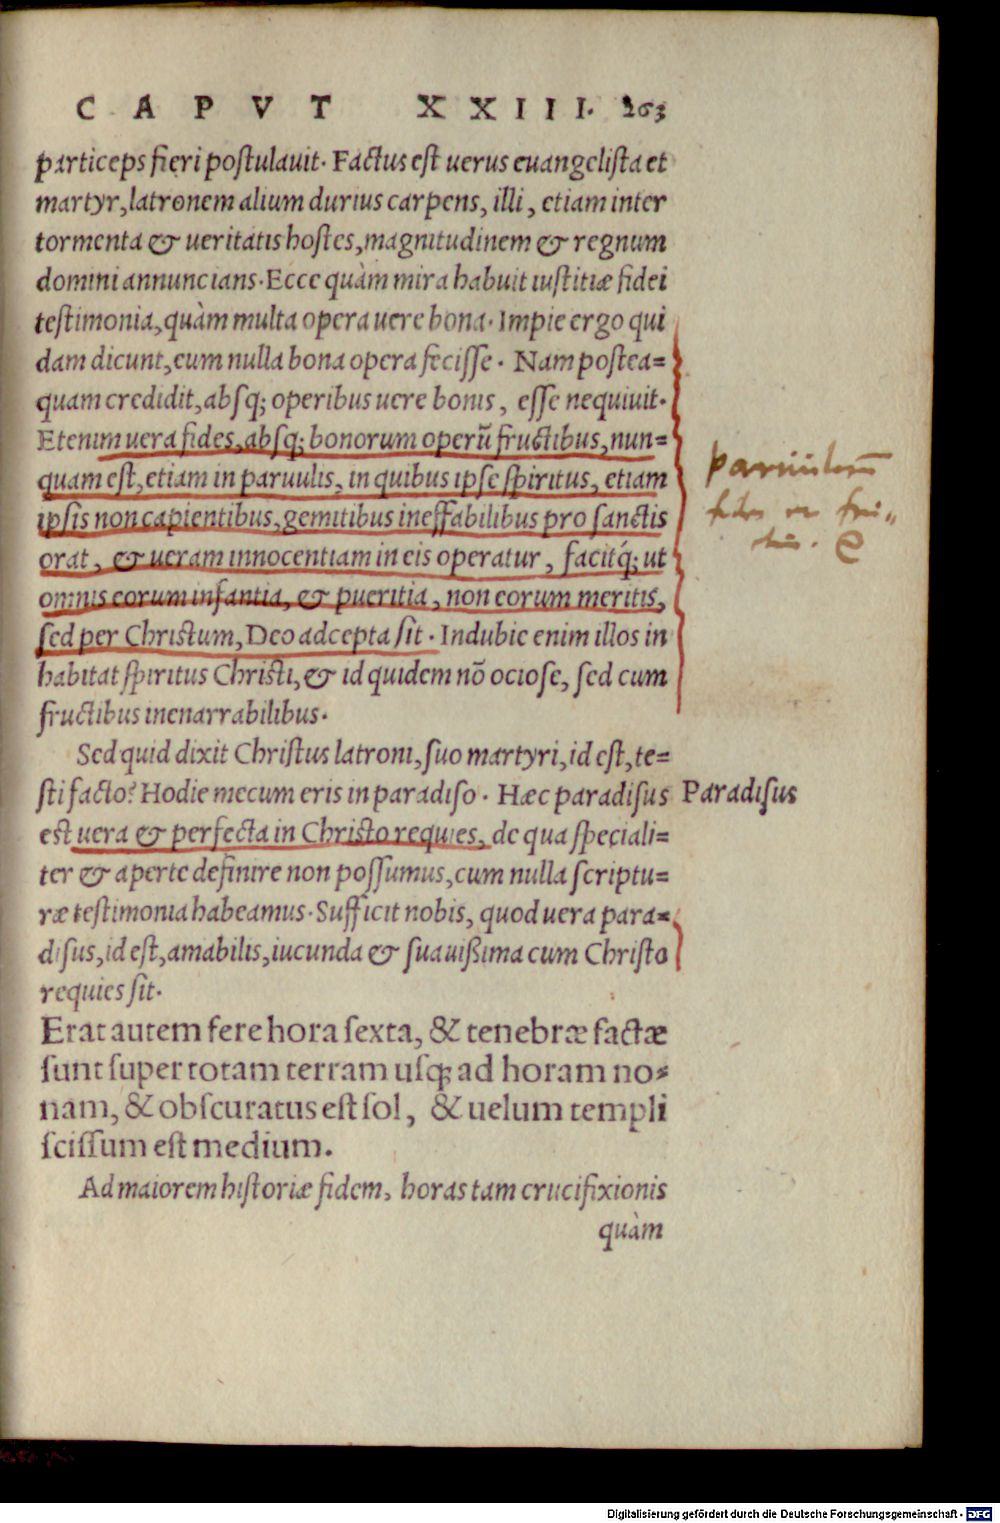 CAPVT XXIII. 263
particeps fieri poſtulauit. Factus eſt uerus euangeliſta et
martyr, latronem alium durius carpens, illi, etiam inter
tormenta & ueritatis hoſtes, magnitudinem & regnum
domini annuncians. Ecce quàm mira habuit iuſtitiæ fidei
teſtimonia, quàm multa opera uere bona. Impie ergo qui
dam dicunt, eum nulla bona opera feciſſe. Nam poſtea=
quam credidit, abſq; operibus uere bonis, eſſe nequiuit.
Etenim uera fides, abſq; bonorum operũ fructibus, nun=
quam eſt, etiam in paruulis, in quibus ipſe ſpiritus, etiam
ipſis non capientibus, gemitibus ineffabilibus pro ſanctis
orat, & ueram innocentiam in eis operatur, facitq́; ut
omnis eorum infantia, & pueritia, non eorum meritis,
ſed per Chriſtum, Deo adcepta ſit. Indubie enim illos in
habitat ſpiritus Chriſti, & id quidem nõ ocioſe, ſed cum
fructibus inenarrabilibus.
Sed quid dixit Chriſtus latroni, ſuo martyri, id eſt, te=
ſti facto? Hodie mecum eris in paradiſo. Hæc paradiſus
eſt uera & perfecta in Chriſto requies, de qua ſpeciali=
ter & aperte definire non poſſumus, cum nulla ſcriptu=
ræ teſtimonia habeamus. Sufficit nobis, quod uera para=
diſus, id eſt, amabilis, iucunda & ſuauißima cum Chriſto
requies ſit.
Erat autem fere hora ſexta, & tenebræ factæ
ſunt ſuper totam terram uſq; ad horam no-
nam, & obſcuratus eſt ſol, & uelum templi
ſciſſum eſt medium.
Ad maiorem hiſtoriæ fidem, horas tam crucifixionis
quàm
Paradiſus
Digitalisierung gefördert durch die Deutsche Forschungsgemeinschaft - DFG